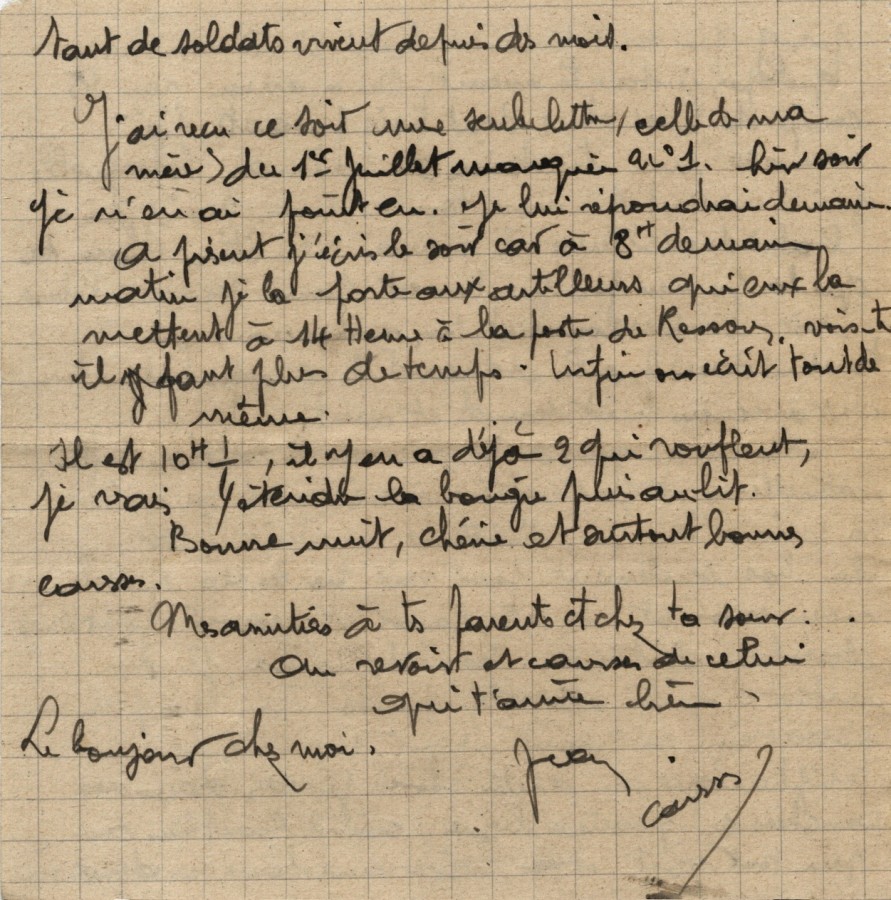 tant de soldats vivent depuis des mois.
J'ai reçu ce soir une seule lettre (celle de ma
mère) du 1er Juillet marquée N°1. hier soir
je n'en ai point eu. Je lui répondrai demain.
A présent j'écris le soir car à 8H demain
matin je la porte aux artilleurs qui eux la
mettent à 14 Heure à la poste de Ressons, vois-tu
il faut plus de temps. Enfin on écrit tout de
même.
Il est 10H 1/4, il y en a déjà 2 qui ronflent,
je vais éteindre la bougie puis au lit.
Bonne nuit, chérie et surtout bonnes
caresses.
Mes amitiés à tes parents et chez ta sœur.
Au revoir et caresses de celui
qui t'aime bien.
Le bonjour chez moi.
Jean
caresses